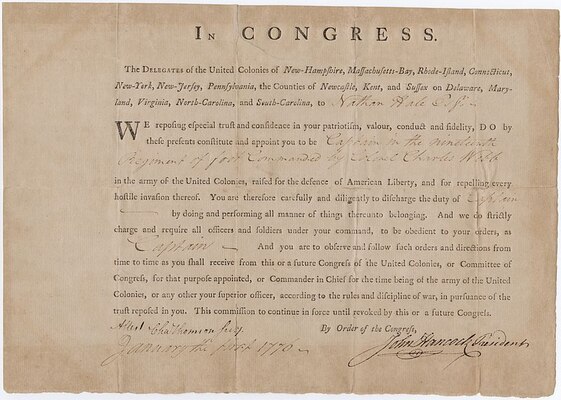 IN CONGRESS.
The DELEGATES of the United Colonies of New-Hampshire, Massachusetts-Bay, Rhode-Island, Connecticut,
New-York, New-Jersey, Pennsylvania, the Counties of Newcastle, Kent, and Sussex on Delaware, Mary-
land, Virginia, North-Carolina, and South-Carolina, to Nathan Hale Esqr.
WE reposing especial trust and confidence in your patriotism, valour, conduct and fidelity, DO by
these presents constitute and appoint you to be Captain in the nineteenth
Regiment of foot Commanded by Charles Webb
in the army of the United Colonies, raised for the defence of American Liberty, and for repelling every
hostile invasion thereof. You are therefore carefully and diligently to discharge the duty of Captain
by doing and performing all manner of things thereunto belonging. And we do strictly
charge and require all officers and soldiers under your command, to be obedient to your orders, as
Captain And you are to observe and follow such orders and directions from
time to time as you shall receive from this or a future Congress of the United Colonies, or Committee of
Congress, for that purpose appointed, or Commander in Chief for the time being of the army of the United
Colonies, or any other your superior officer, according to the rules and discipline of war, in pursuance of the
trust reposed in you. This commission to continue in force until revoked by this or a future Congress.
Attest Cha Thomson secy. By Order of the Congress,
January the first 1776 John Hancock President